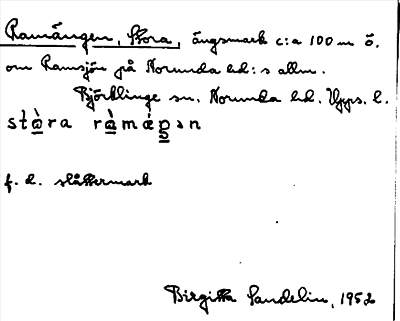 Ramängen, Stora, ängsmark c:a 100 m ö.
om Ramsjön på Norunda hd:s allm.
Björklinge sn. Norunda hd. Upps. l.
stɷ̀ra rɷ̀mǽŋən
f. d. slåttermark
Birgitta Sandelin, 1952